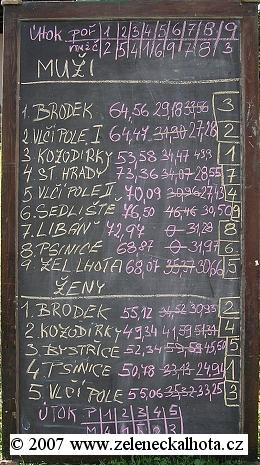 ÚTOK POŘ 1 2 3 4 5 6 7 8 9
MUŽI
1. BRODEK 64,56 29,18 3
2. VLČÍ POLE I 64,47 27,28 2
3 KOZODÍRKY 53,58 34,47 1
4 ST HRADY 73,36 34,07 28,55 7
5 VLČÍ POLE II 70,09 30,96 27,43 4
6. SEDLIŠTĚ 76,50 46,46 30,50 9
7. LIBÁŇ 72,97 0 31,28 8
8. PSINICE 68,87 0 31,97 6
9. ŽEL LHOTA 68,07 35,37 30,66 5
ŽENY
1. BRODEK 55,12 34,52 30,93 2
2. KOZODÍRKY 49,34 41,59 1
3 BYSTŘICE 52,34 45,50 3
4 PSINICE 50,48 33,13 24,91 1
5. VLČÍ POLE 55,06 35,32 33,25
ÚTOK P 1 2 3 4 5
M
© 2007 www.zeleneckalhota.cz